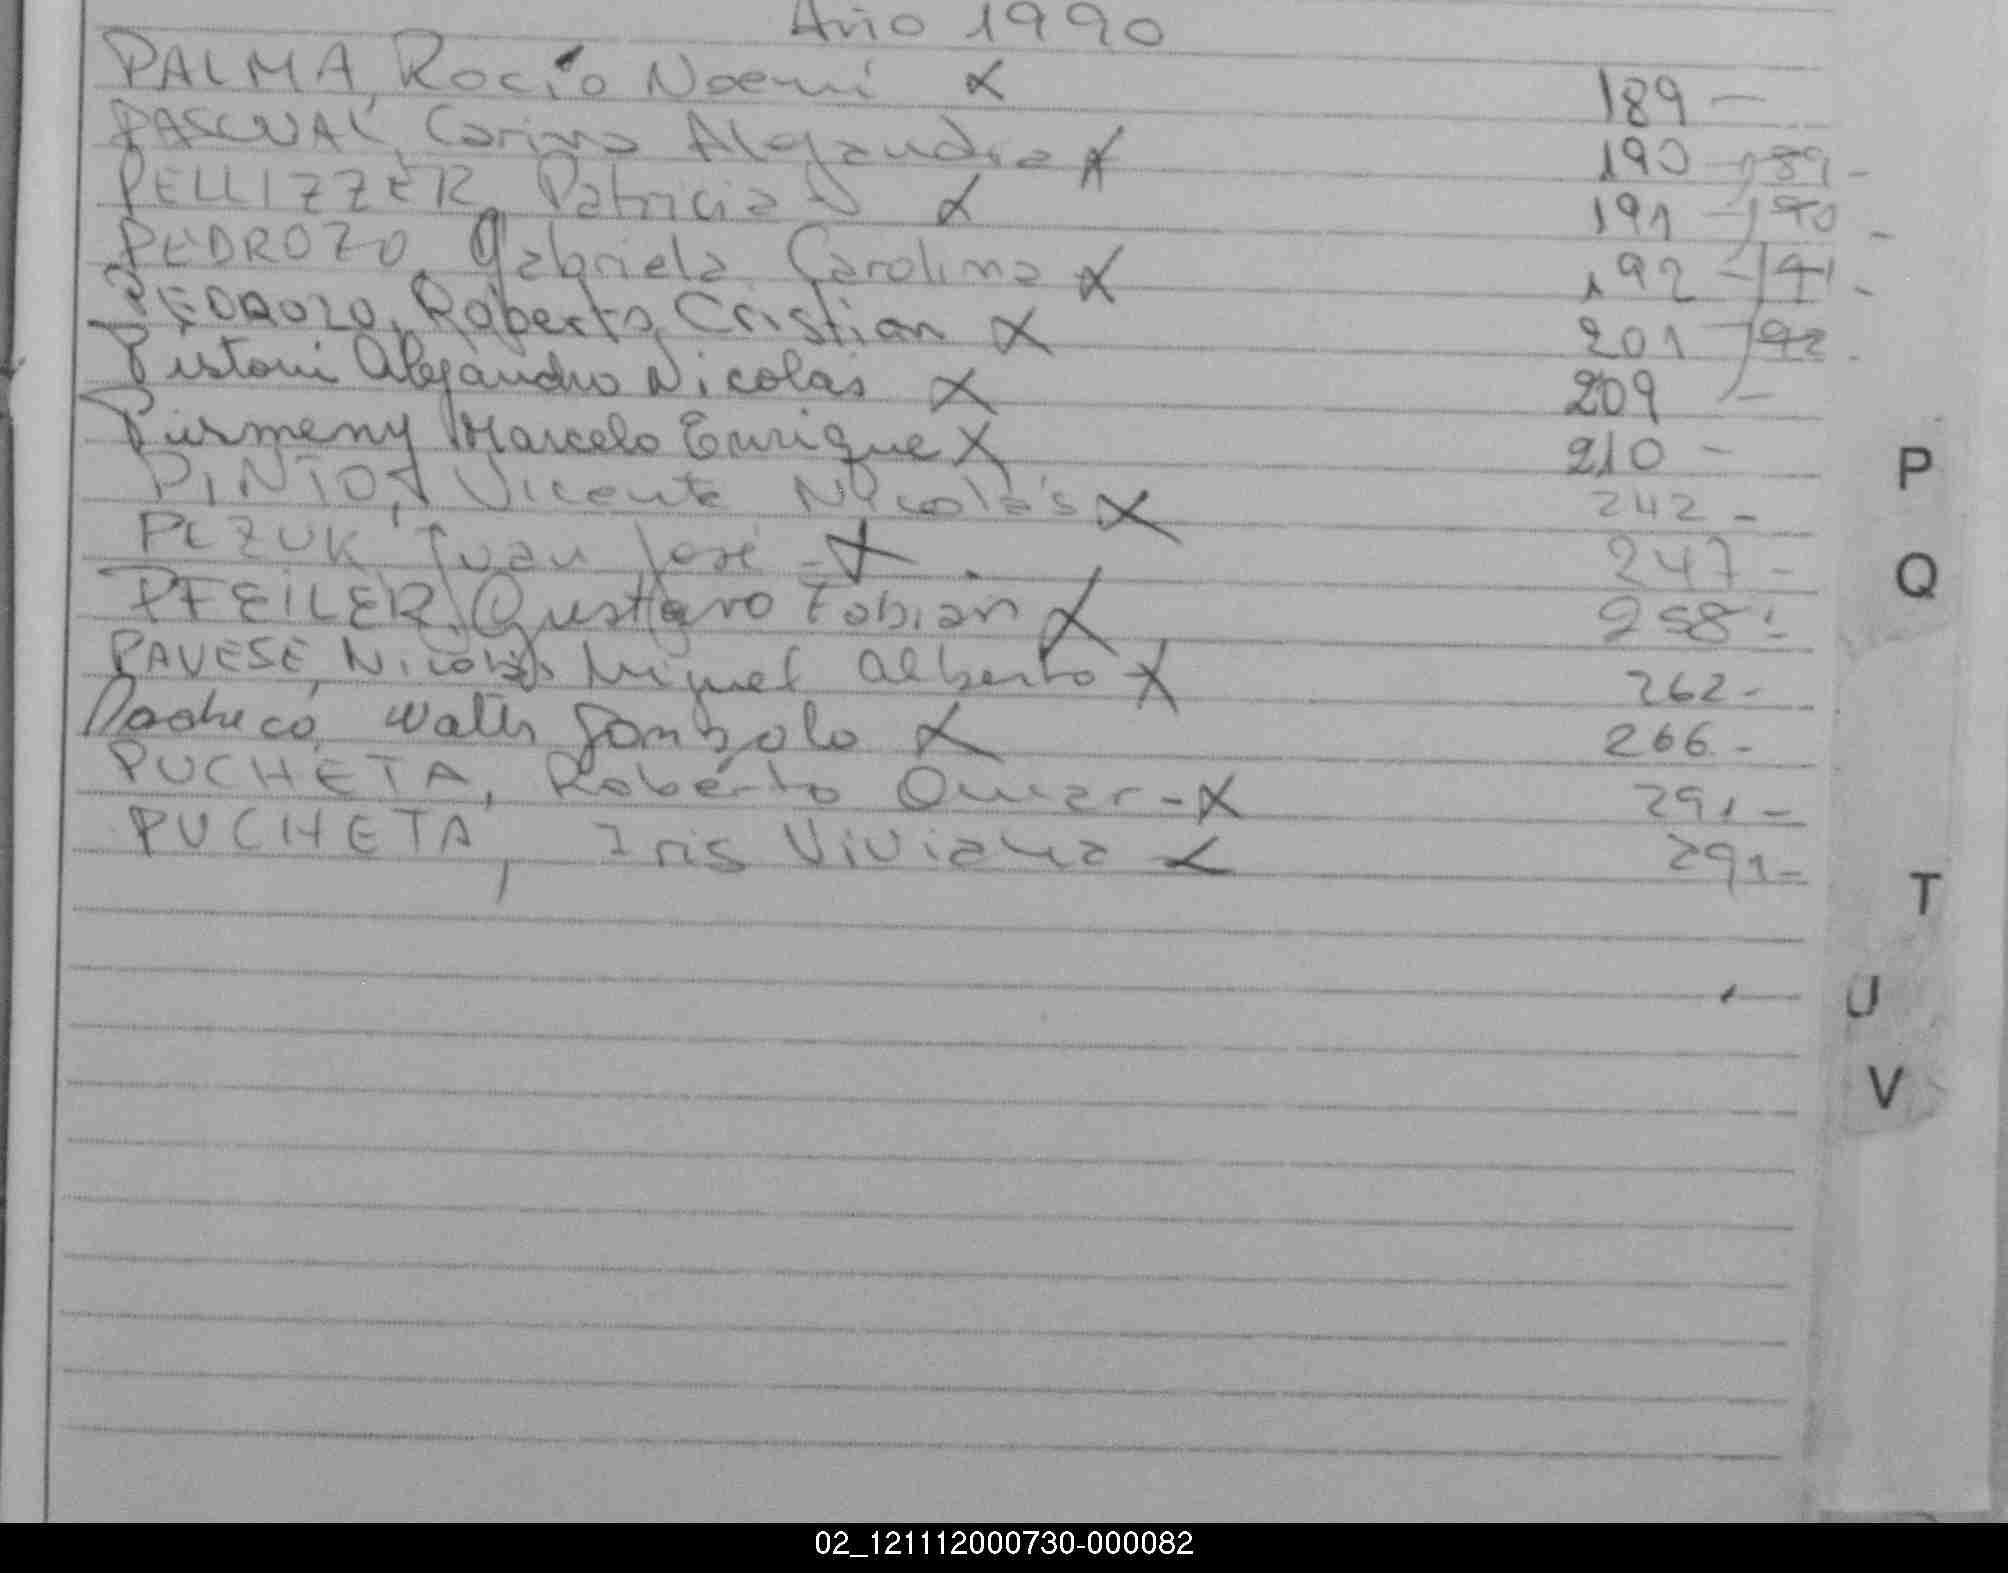 Año 1990
PALMA, Rocío Noemi X 189 -
PASCUAL, Carina Alejandra X 190 - 189 -
PELLIZZER, Patricia X 191 - 190 -
PEDROZO, Gabriela Carolina X 192 - 191 -
PEDROZO, Roberto Cristian X 201 - 192 -
Pistoni Alejandro Nicolas X 209 -
Marcelo Enrique X 210 -
PINTO, Vicente Nicolás X 242 -
Juan José - X 247 -
PFEILER, Gustavo Fabian X 258 -
PAVESE, Nicolas Miguel Alberto X 262 -
Pacheco, Walter X 266 -
PUCHETA, Roberto Omar - X 291 -
PUCHETA, Iris Viviana X 291 -
P
Q
T
U
V
02_121112000730-000082